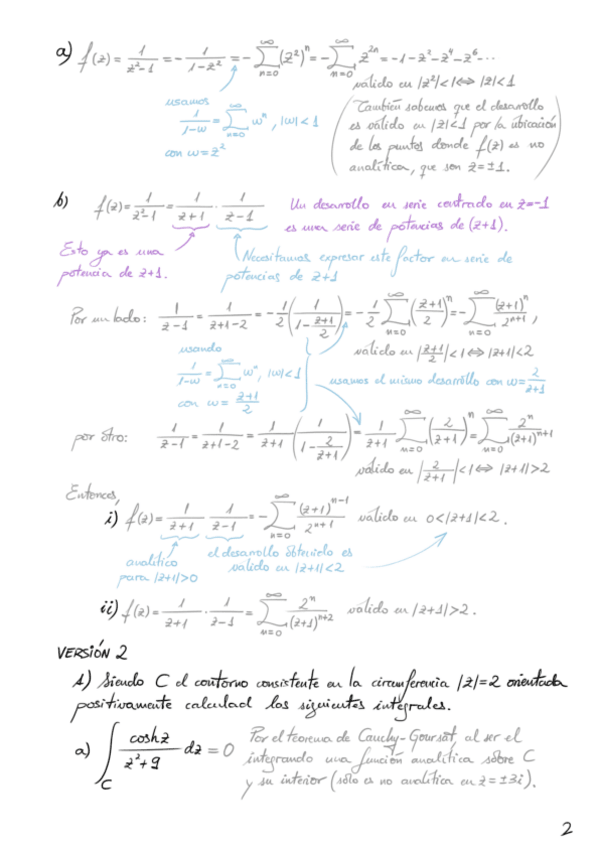 a) f(z) = 1/(z²-1) = - 1/(1-z²) = - ∑_{n=0}^{∞} (z²)ⁿ = - ∑_{n=0}^{∞} z²ⁿ = -1-z²-z⁴-z⁶-...
válido en |z²|<1 ⟺ |z|<1
usamos
1/(1-w) = ∑_{n=0}^{∞} wⁿ, |w|<1
con w=z²
(También sabemos que el desarrollo
es válido en |z|<1 por la ubicación
de los puntos donde f(z) es no
analítica, que son z=±1.)
b) f(z) = 1/(z²-1) = 1/(z+1) · 1/(z-1)
Un desarrollo en serie centrado en z=-1
es una serie de potencias de (z+1).
Esto ya es una
potencia de z+1.
Necesitamos expresar este factor en serie de
potencias de z+1
Por un lado: 1/(z-1) = 1/(z+1-2) = - 1/2 (1/(1-(z+1)/2)) = - 1/2 ∑_{n=0}^{∞} ((z+1)/2)ⁿ = - ∑_{n=0}^{∞} (z+1)ⁿ/2ⁿ⁺¹,
válido en |(z+1)/2|<1 ⟺ |z+1|<2
usando
1/(1-w) = ∑_{n=0}^{∞} wⁿ, |w|<1
con w = (z+1)/2
usamos el mismo desarrollo con w= 2/(z+1)
por otro: 1/(z-1) = 1/(z+1-2) = 1/(z+1) (1/(1-2/(z+1))) = 1/(z+1) ∑_{n=0}^{∞} (2/(z+1))ⁿ = ∑_{n=0}^{∞} 2ⁿ/(z+1)ⁿ⁺¹
válido en |2/(z+1)|<1 ⟺ |z+1|>2
Entonces,
i) f(z) = 1/(z+1) · 1/(z-1) = - ∑_{n=0}^{∞} (z+1)ⁿ⁻¹/2ⁿ⁺¹ válido en 0<|z+1|<2.
analítico
para |z+1|>0
el desarrollo obtenido es
válido en |z+1|<2
ii) f(z) = 1/(z+1) · 1/(z-1) = ∑_{n=0}^{∞} 2ⁿ/(z+1)ⁿ⁺² válido en |z+1|>2.
VERSIÓN 2
1) Siendo C el contorno consistente en la circunferencia |z|=2 orientada
positivamente calculad las siguientes integrales.
a) ∫_C cosh z/(z²+9) dz = 0
Por el teorema de Cauchy-Goursat, al ser el
integrando una función analítica sobre C
y su interior (sólo es no analítica en z=±3i).
2